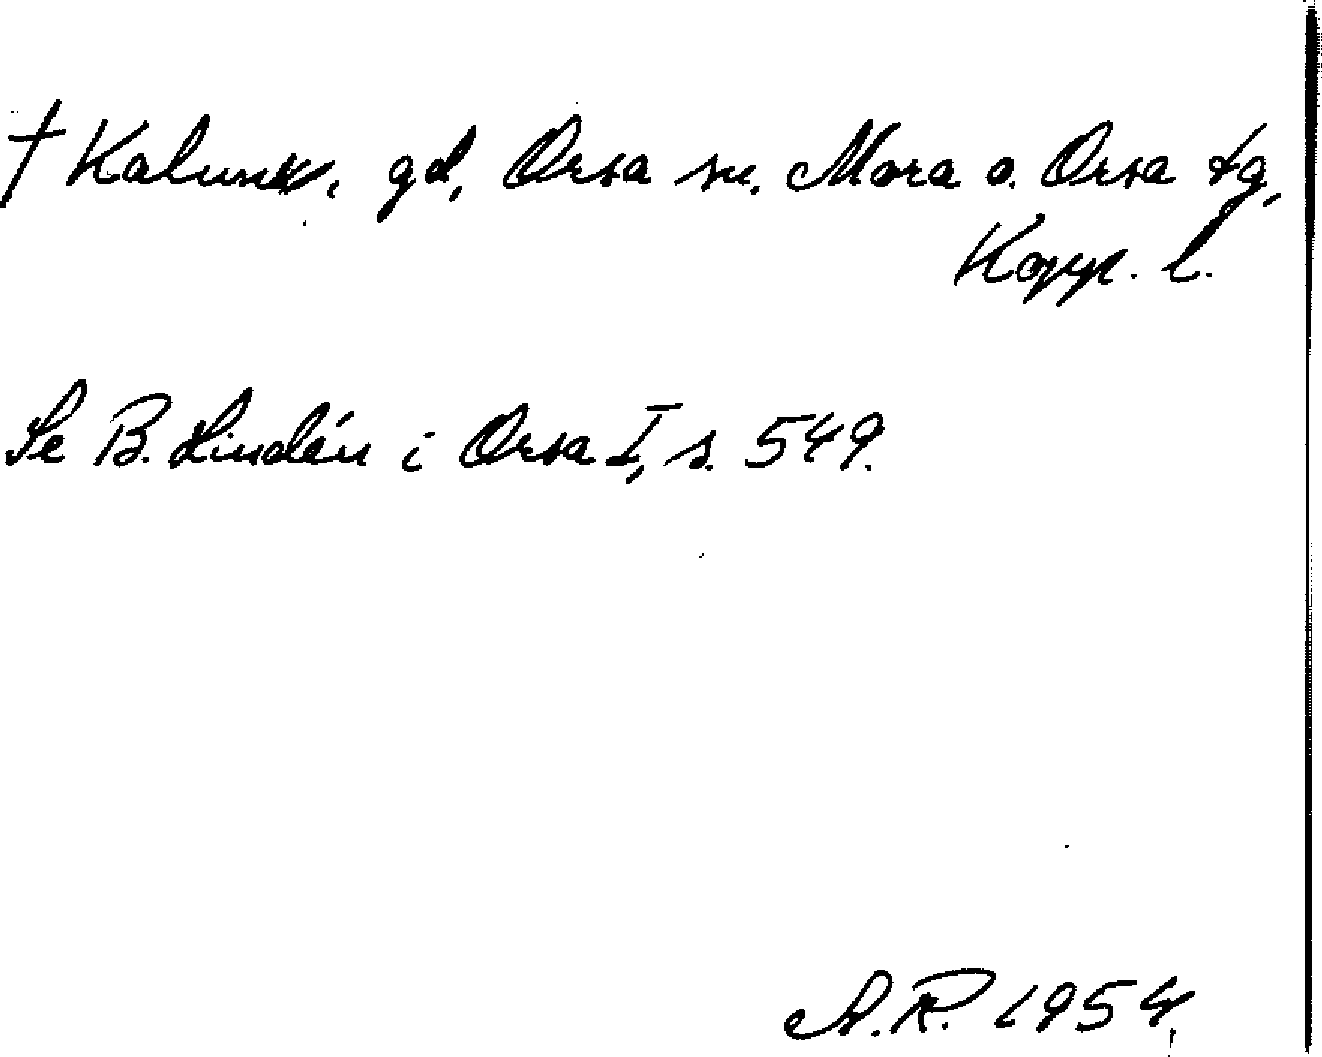 † Kalunk, gd, Orsa sn. Mora o. Orsa tg,
Kopp. l.
Se B. Lindén i Orsa I, s. 549.
A.R. 1954.